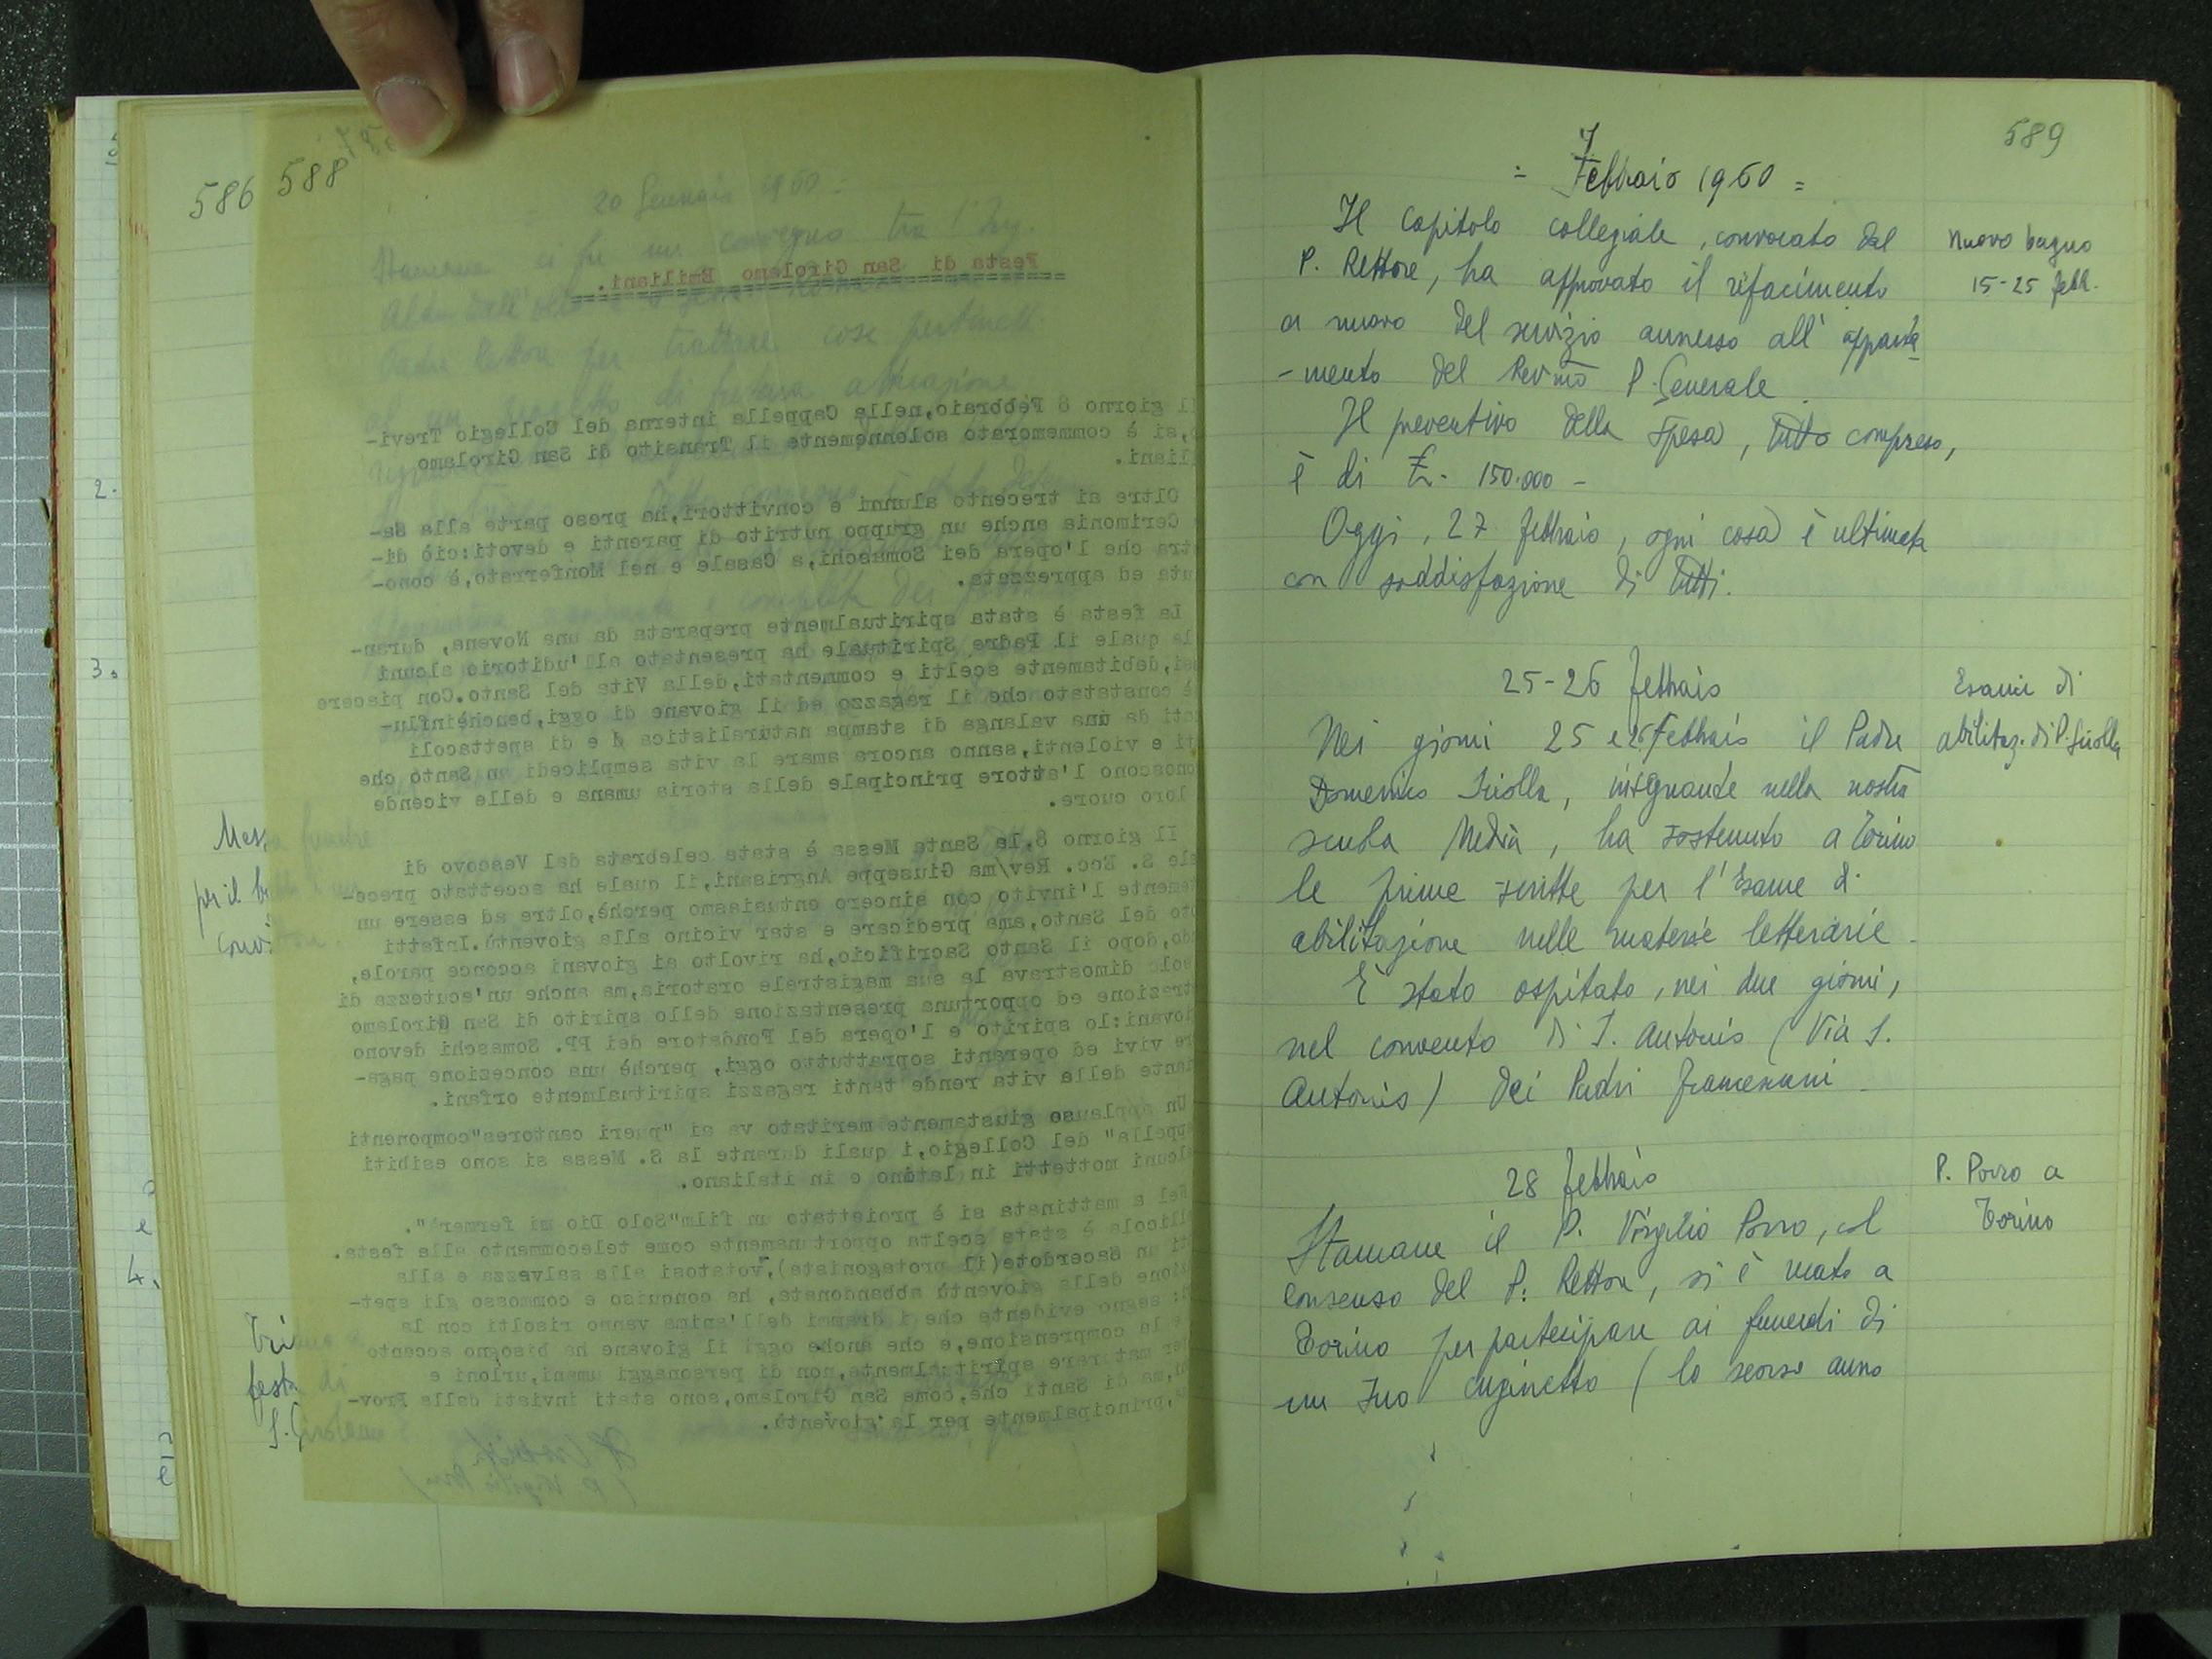 586 588
Mes
per il b
conv
festa di
S. Girolamo
20 Gennaio 1960 =
Festa di San Girolamo Emiliani.
Il giorno 8 Febbraio,nella Cappella interna del Collegio Trevi-
,si è commemorato solennemente il Transito di San Girolamo
liani.
Oltre ai trecento alunni e convittori,ha preso parte alla Sa-
Cerimonia anche un gruppo nutrito di parenti e devoti:ciò di-
tra che l'opera dei Somaschi,a Casale e nel Monferrato,è cono-
uta ed apprezzata.
La festa è stata spiritualmente preparata da una Novena, duran-
la quale il Padre Spirituale ha presentato all'uditorio alcuni
ei,debitamente scelti e commentati,della Vita del Santo.Con piacere
è constatato che il ragazzo ed il giovane di oggi,benchèinflu-
nti da una valanga di stampa naturalistica e di spettacoli
ti e violenti,sanno ancora amare la vita semplicedi un Santo che
onoscono l'attore principale della storia umana e delle vicende
loro cuore.
Il giorno 8,la Santa Messa è stata celebrata dal Vescovo di
ale S. Ecc. Rev/ma Giuseppe Angrisani,il quale ha accettato prece-
temente l'invito con sincero entusiasmo perchè,oltre ad essere un
oto del Santo,ama predicare e star vicino alla gioventù.Infatti
do,dopo il Santo Sacrificio,ha rivolto ai giovani acconce parole,
solo dimostrava la sua magistrale oratoria,ma anche un'acutezza di
trazione ed opportuna presentazione dello spirito di San Girolamo
iovani:lo spirito e l'opera del Fondatore dei PP. Somaschi devono
re vivi ed operanti soprattutto oggi, perchè una concezione paga-
iante della vita rende tanti ragazzi spiritualmente orfani.
Un applauso giustamente meritato va ai "pueri cantores"componenti
appella" del Collegio,i quali durante la S. Messa si sono esibiti
alcuni mottetti in latino e in italiano.
Nel a mattinata si è proiettato un film"Solo Dio mi fermerà".
llicola è stata scelta opportunamente come telecommento alla festa.
ti un Sacerdote(il protagonista),votatosi alla salvezza e alla
zione della gioventù abbandonata, ha conquiso e commosso gli spet-
: segno evidente che i drammi dell'anima vanno risolti con la
e la comprensione,e che anche oggi il giovane ha bisogno accanto
er maturare spiritualmente,non di personaggi umani,urloni e
i,ma di Santi che,come San Girolamo,sono stati inviati dalla Prov-
a,principalmente per la gioventù.
589
7
= Febbraio 1960 =
Il Capitolo collegiale, convocato dal
P. Rettore, ha approvato il rifacimento
a nuovo del servizio annesso all'apparta
-mento del Rev.mo P. Generale.
Nuovo bagno
15-25 febb.
Il preventivo della spesa, tutto compreso,
è di £. 150.000 -
Oggi, 27 febbraio, ogni cosa è ultimata
con soddisfazione di tutti.
25-26 febbraio
Nei giorni 25 e 26 Febbraio il Padre
Domenico Griolla, insegnante nella nostra
scuola Media, ha sostenuto a Torino
le prime scritte per l'Esame di
abilitazione nelle materie letterarie.
Esami di
abilitaz. di P.
È stato ospitato, nei due giorni,
nel convento di S. Antonio (Via S.
Antonio) dei Padri francescani.
28 febbraio
Stamane il P. Virgilio Porro, col
consenso del P. Rettore, si è recato a
Torino per partecipare ai funerali di
un suo cuginetto (lo scorso anno
P. Porro a
Torino